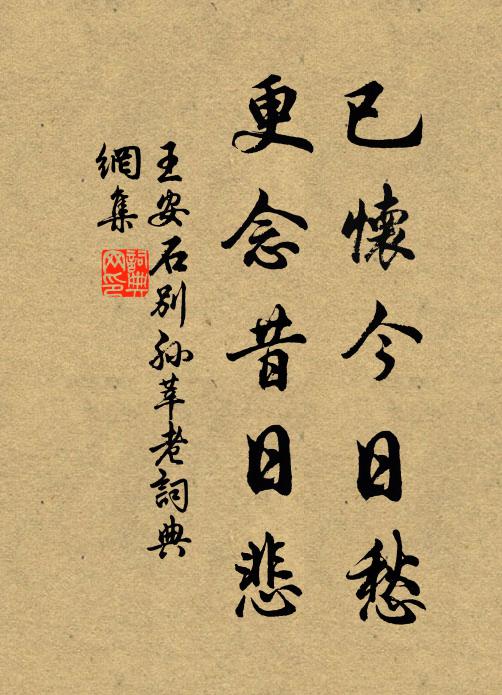 已懷今日愁
更念昔日悲
王安石別孫莘老詞典
網集
詞典
网印